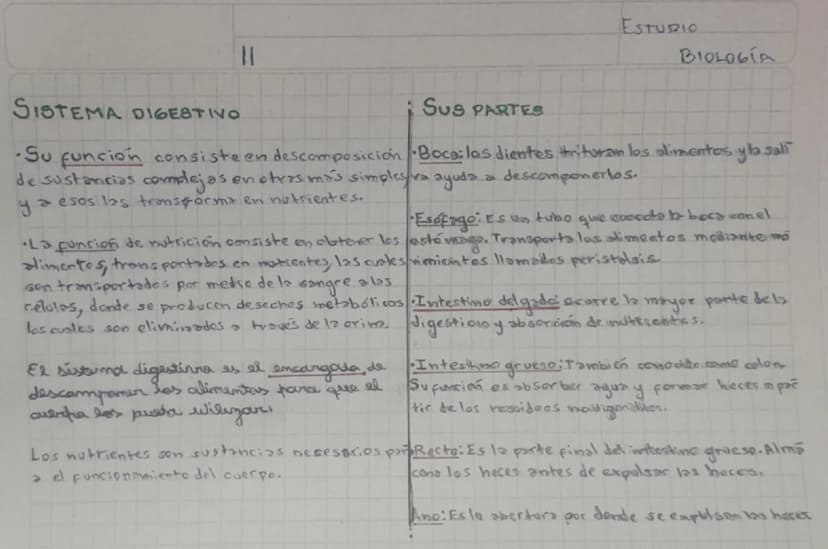 ESTUDIO
11
BIOLOGÍA
SISTEMA DIGESTIVO
·Su función consiste en descomposición
de sustancias complejas en otras más simples
y a esos las transforma en nutrientes.
·La función de nutrición consiste en obtener los
alimentos, transportados en nutrientes, las cuales
son transportados por medio de la sangre a las
células, donde se producen desechos metabólicos
los cuales son eliminados a través de la orina.
El sistema digestivo es el encargado de
descomponer los alimentos para que el
cuerpo los pueda utilizar.
Los nutrientes son sustancias necesarios par
a el funcionamiento del cuerpo.
SUS PARTES
·Boca: los dientes trituran los alimentos y la sali
va ayuda a descomponerlos.
·Esófago: Es un tubo que conecta la boca con el
estómago. Transporta los alimentos mediante mo
vimientos llamados peristalsis
·Intestino delgado: ocurre la mayor parte de la
digestion y absorción de nutrientes.
·Intestino grueso: También conocido como colon
Su función es absorber agua y formar heces a par
tir de los residuos
Recto: Es la parte final del intestino grueso. Alma
cena los heces antes de expulsar las heces.
Ano: Es la abertura por donde se expulsan las heces